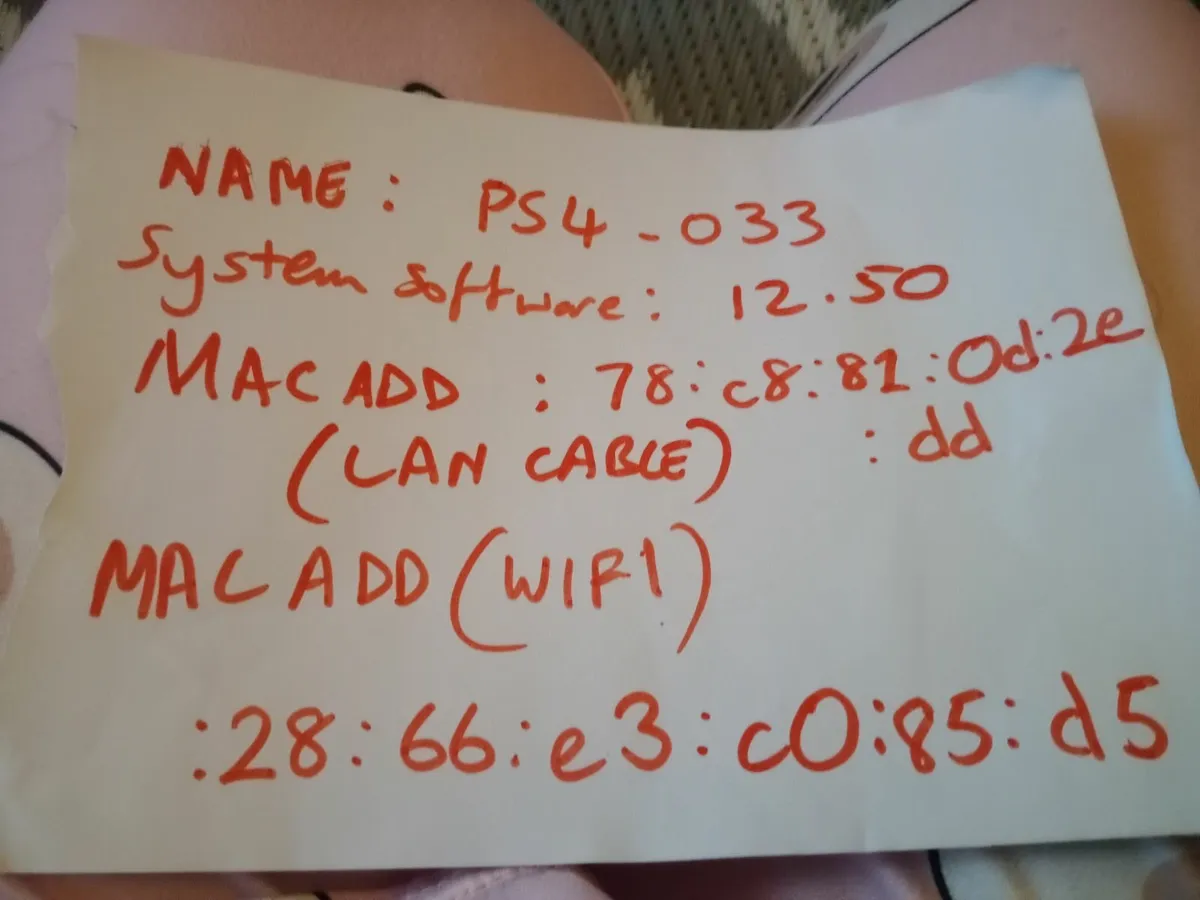 NAME: PS4-033
System software: 12.50
MAC ADD : 78:c8:81:0d:2e
(LAN CABLE) :dd
MAC ADD (WIFI)
:28:66:e3:c0:85:d5